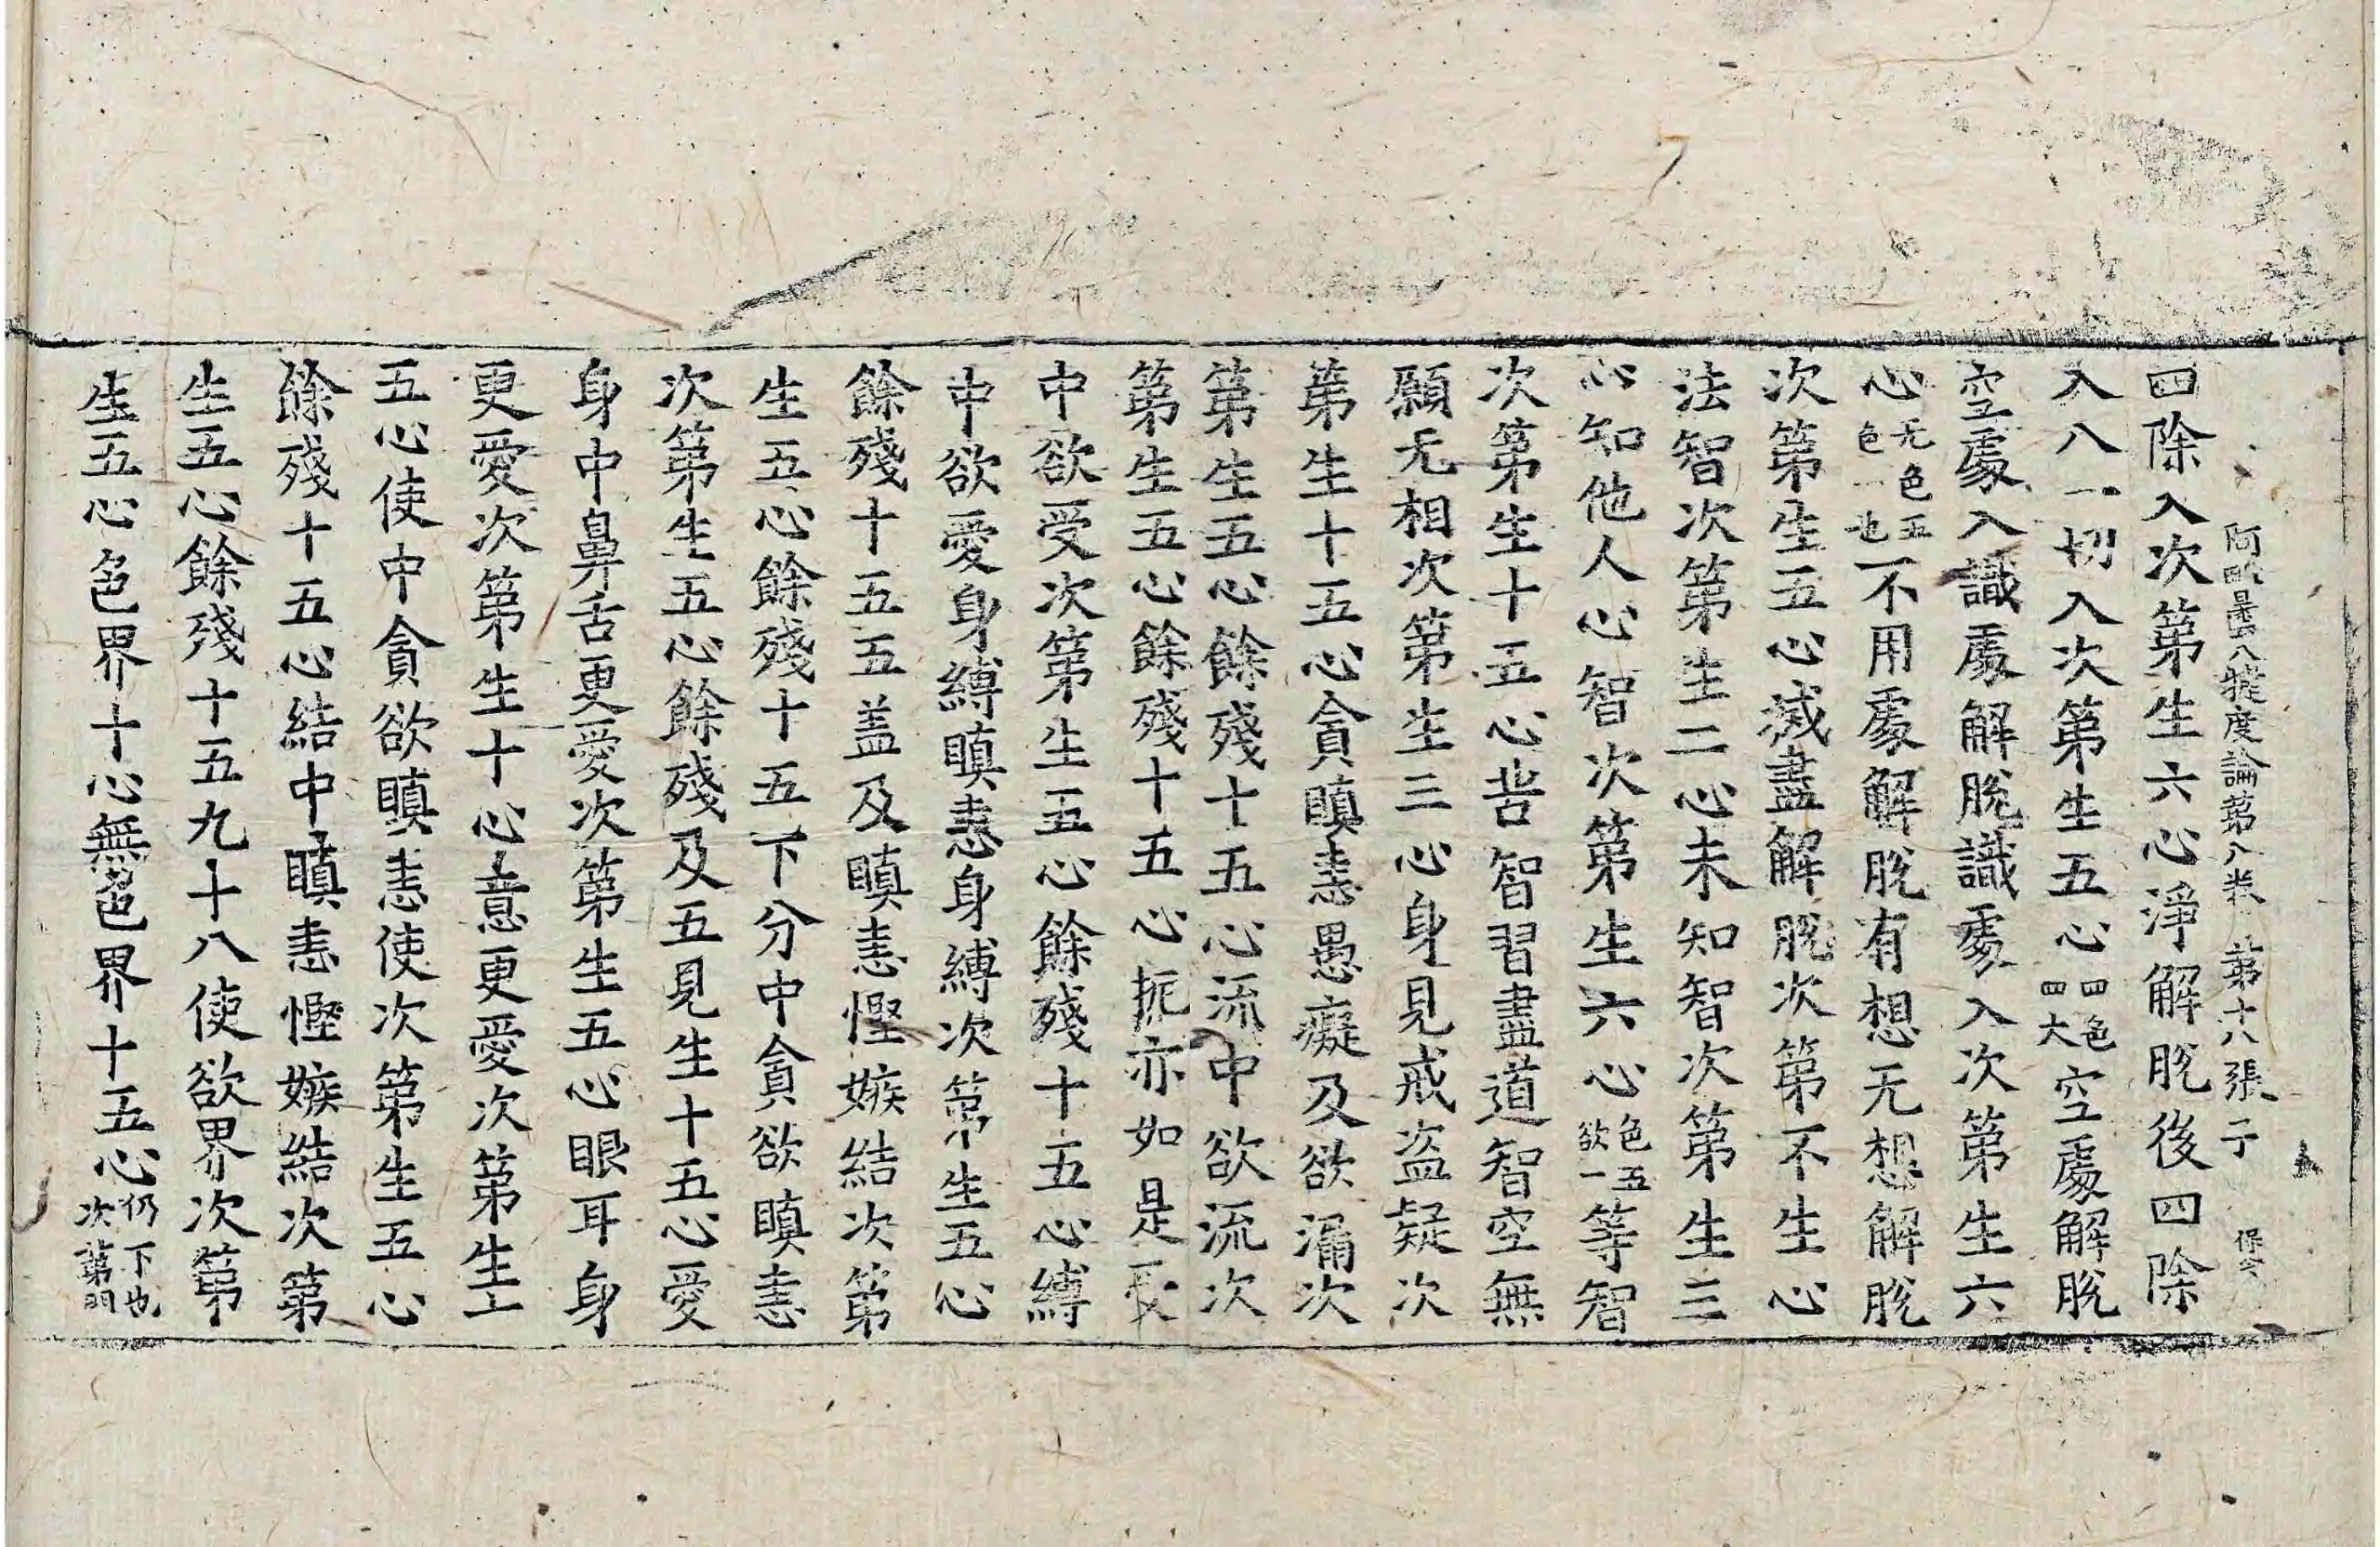 阿毗曇八犍度論第八卷 第十八張 于
四除入次第生六心淨解脫後四除
入八一切入次第生五心四色四大空處解脫
空處入識處解脫識處入次第生六
心无色五色一也不用處解脫有想无想解脫
次第生五心滅盡解脫次第不生心
法智次第生二心未知智次第生三
心知他人心智次第生六心色五欲一等智
次第生十五心苦智習盡道智空無
願无相次第生三心身見戒盜疑次
第生十五心貪瞋恚愚癡及欲漏次
第生五心餘殘十五心流中欲流次
第生五心餘殘十五心扼亦如是受
中欲受次第生五心餘殘十五心縛
中欲愛身縛瞋恚身縛次第生五心
餘殘十五五盖及瞋恚慳嫉結次第
生五心餘殘十五下分中貪欲瞋恚
次第生五心餘殘及五見生十五心愛
身中鼻舌更愛次第生五心眼耳身
更愛次第生十心意更愛次第生十
五心使中貪欲瞋恚使次第生五心
餘殘十五心結中瞋恚慳嫉結次第
生五心餘殘十五九十八使欲界次第
生五心色界十心無色界十五心仍下也次第門